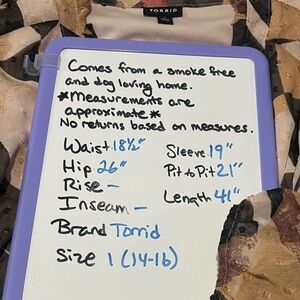 TORRID
Comes from a smoke free
and dog loving home.
*Measurements are
approximate*
No returns based on measures.
Waist 18½"
Hip 26"
Rise –
Inseam –
Brand Torrid
Size 1 (14-16)
Sleeve 19"
Pit to Pit 21"
Length 41"